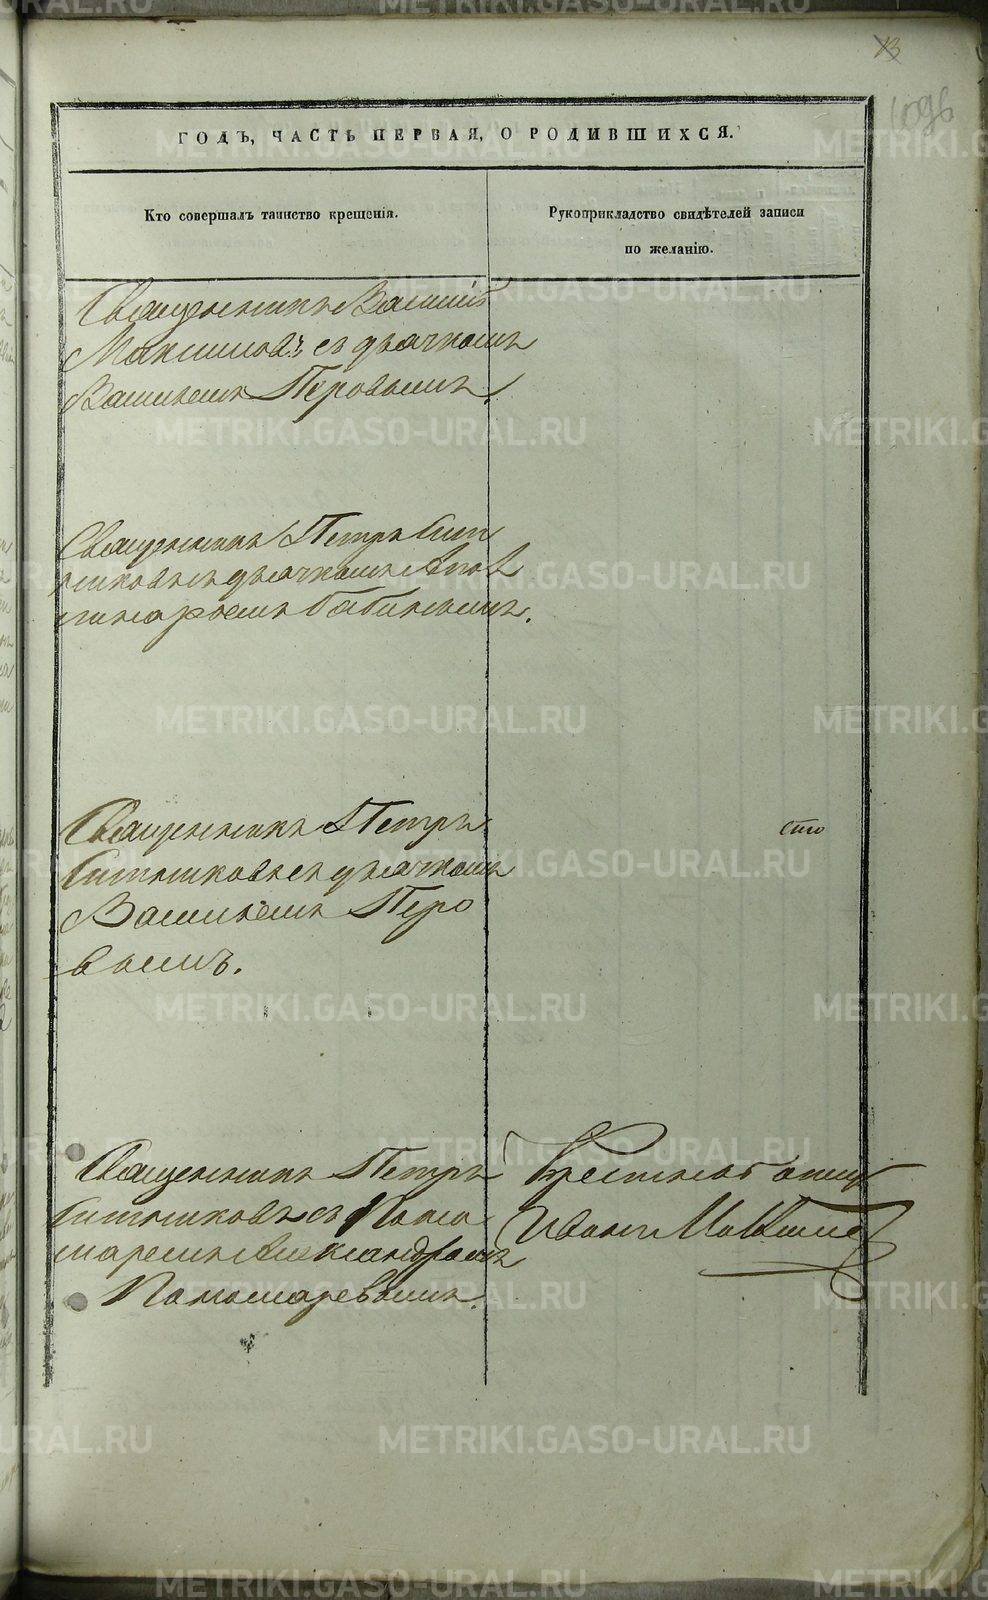 13
1096
ГОДЪ, ЧАСТЬ ПЕРВАЯ, О РОДИВШИХСЯ.
Кто совершалъ таинство крещенія.
Рукоприкладство свидѣтелей записи
по желанію.
Священникъ Василій
Максимовъ съ дьячкомъ
Васильемъ Перовымъ.
Священникъ Петръ Сит
никовъ съ дьячкомъ Апол
линарьемъ Бабинымъ.
Священникъ Петръ
Ситниковъ съ дьячкомъ
Васильемъ Перо
вымъ.
сто
Священникъ Петръ
Ситниковъ съ Поно
маремъ Александромъ
Пономаревымъ.
Крестной отец
Иванъ
METRIKI.GASO-URAL.RU